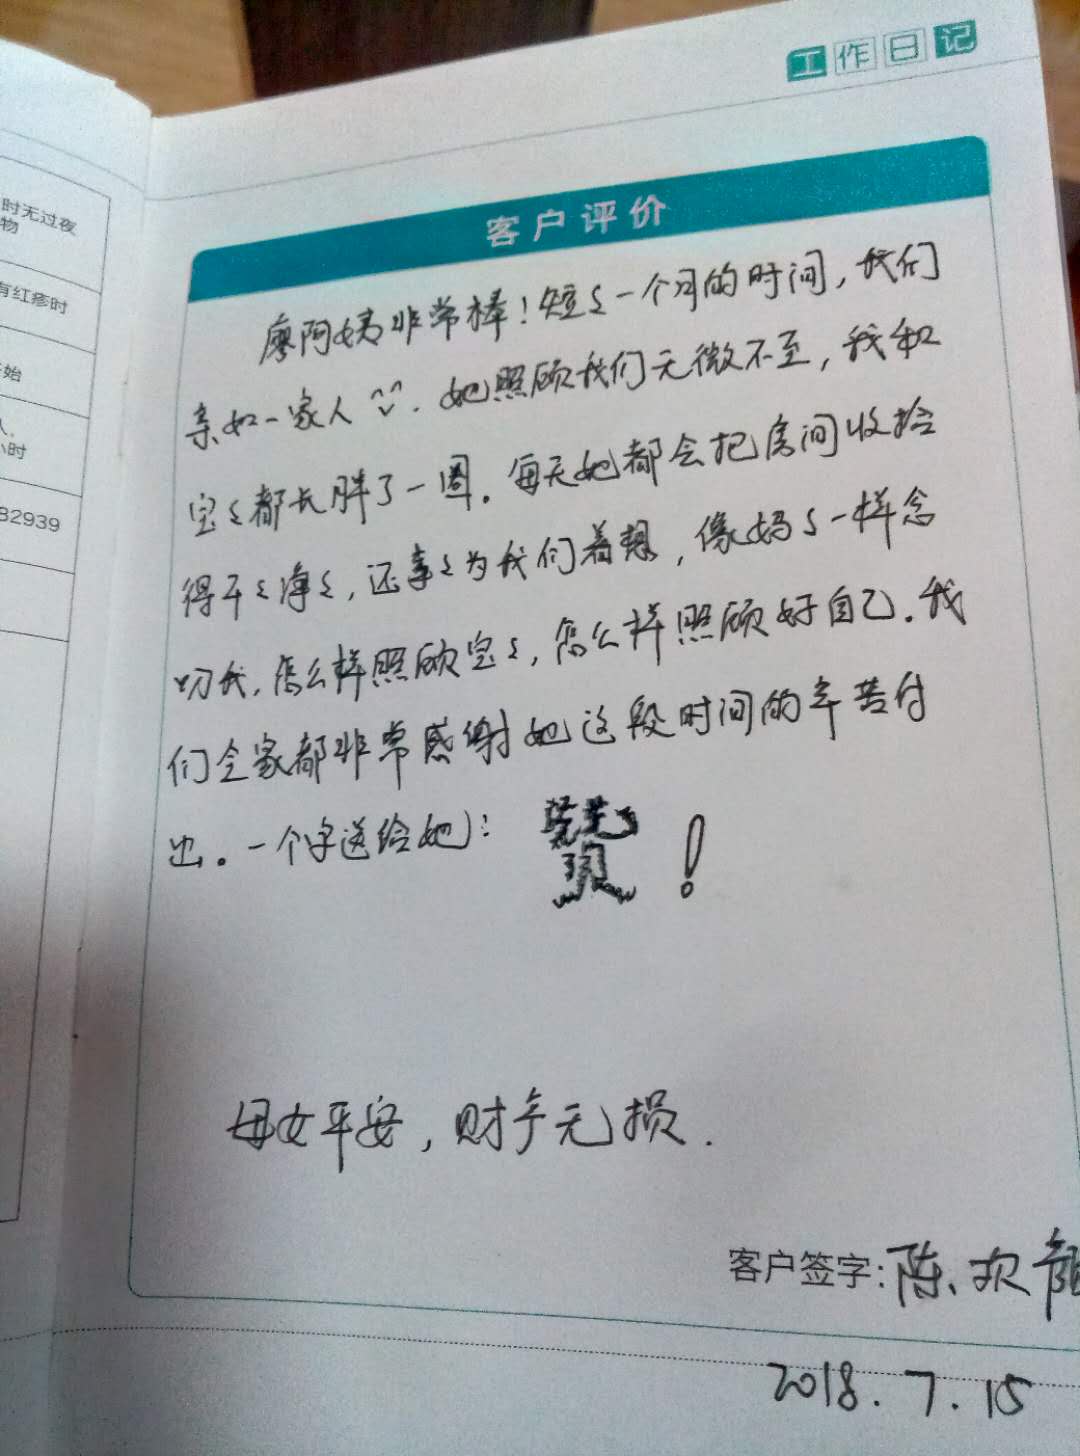 工作日记
时无过夜
物
有红疹时
始
人,
小时
82939
客户评价
廖阿姨非常棒!短々一个月的时间,我们
亲如一家人^ᵕ^.她照顾我们无微不至,我和
宝々都长胖了一圈。每天她都会把房间收拾
得干々净々,还事々为我们着想,像妈々一样念
叨我,怎么样照顾宝々,怎么样照顾好自己.我
们全家都非常感谢她这段时间的辛苦付
出。一个字送给她:赞!
母女平安,财产无损.
客户签字:陈欢
2018.7.15